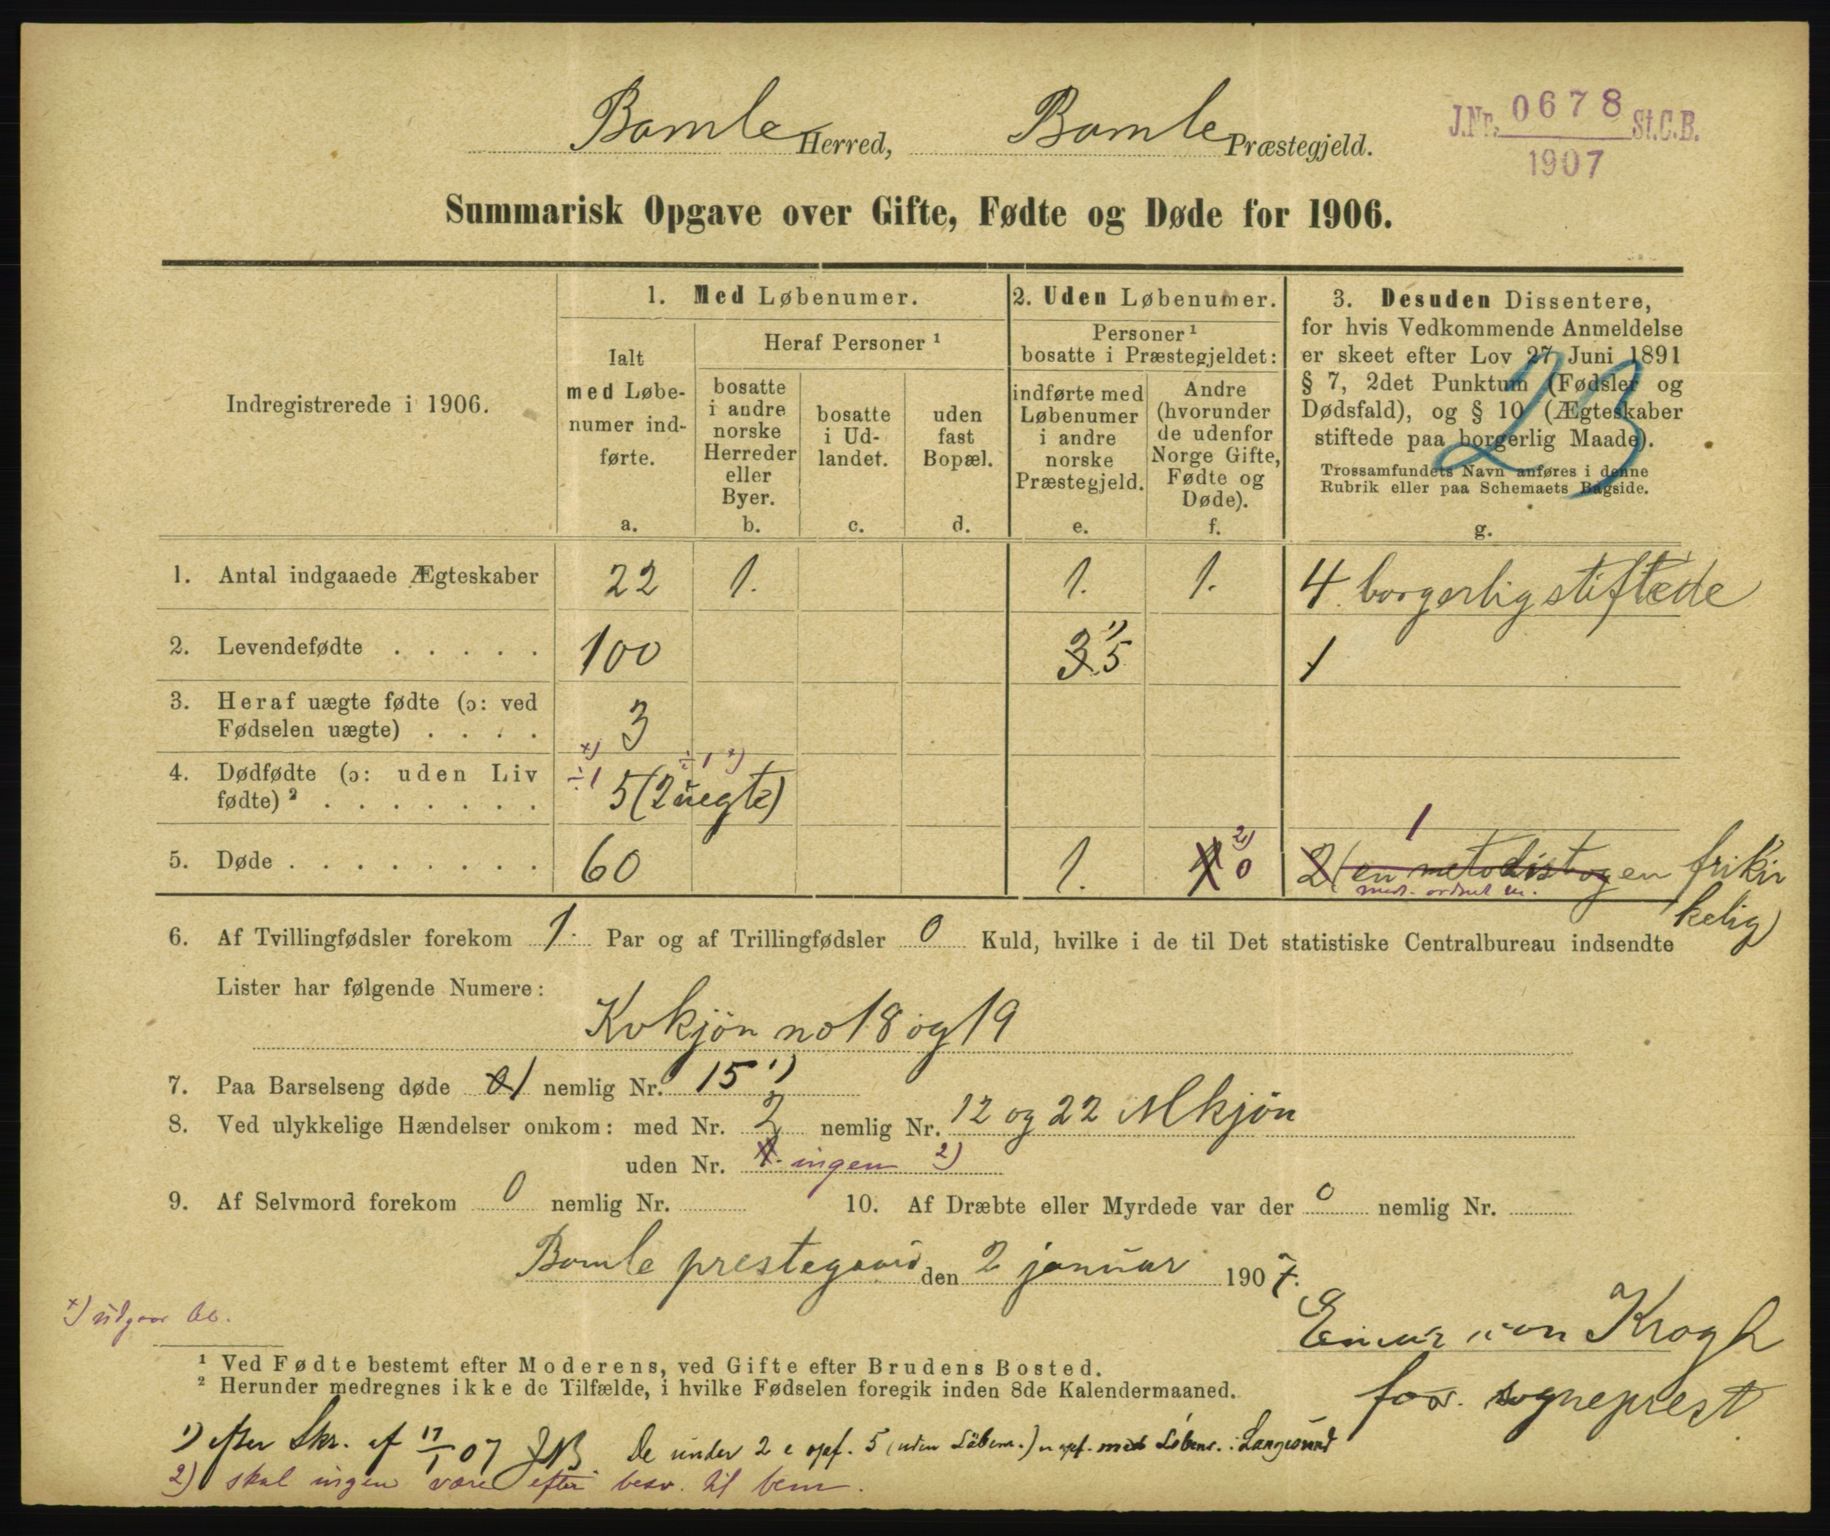 Bamle Herred, Bamle Præstegjeld.
J.Nr. 0678 St.C.B.
1907
Summarisk Opgave over Gifte, Fødte og Døde for 1906.
Indregistrerede i 1906.
1. Med Løbenumer.
Ialt
med Løbe-
numer ind-
førte.
a.
Heraf Personer ¹
bosatte
i andre
norske
Herreder
eller
Byer.
b.
bosatte
i Ud-
landet.
c.
uden
fast
Bopæl.
d.
2. Uden Løbenumer.
Personer ¹
bosatte i Præstegjeldet:
indførte med
Løbenumer
i andre
norske
Præstegjeld.
e.
Andre
(hvorunder
de udenfor
Norge Gifte,
Fødte og
Døde).
f.
3. Desuden Dissentere,
for hvis Vedkommende Anmeldelse
er skeet efter Lov 27 Juni 1891
§ 7, 2det Punktum (Fødsler og
Dødsfald), og § 10 (Ægteskaber
stiftede paa borgerlig Maade).
Trossamfundets Navn anføres i denne
Rubrik eller paa Schemaets Bagside.
g.
23
1. Antal indgaaede Ægteskaber 22 1. 1. 1. 4 borgerlig stiftede
2. Levendefødte . . . . . 100 3 5 1) 1
3. Heraf uægte fødte (ɔ: ved
Fødselen uægte) . . . . 3
4. Dødfødte (ɔ: uden Liv
fødte) ² . . . . . . . ÷1 x) 5 (2 uegte) ÷1 x)
5. Døde . . . . . . . . 60 1. 1 0 2) 2 (en metodist og en frikir
kelig)
1
6. Af Tvillingfødsler forekom 1. Par og af Trillingfødsler 0 Kuld, hvilke i de til Det statistiske Centralbureau indsendte
Lister har følgende Numere:
Kvkjøn no 18 og 19
7. Paa Barselseng døde 0 1 nemlig Nr. 15 1)
8. Ved ulykkelige Hændelser omkom: med Nr. 2 nemlig Nr. 12 og 22 Mkjøn
uden Nr. 1. ingen 2)
9. Af Selvmord forekom 0 nemlig Nr.
10. Af Dræbte eller Myrdede var der 0 nemlig Nr.
Bamle prestegaard den 2 januar 1907.
x) udgaar
Einar von Krogh
for. sogneprest
¹ Ved Fødte bestemt efter Moderens, ved Gifte efter Brudens Bosted.
² Herunder medregnes ikke de Tilfælde, i hvilke Fødselen foregik inden 8de Kalendermaaned.
1) efter Skr. af 17/1 07 De under 2 e opf. 5 (uden Löbenr.) er opf. med Löbenr. i Langesund
2) skal ingen være efter besv. til bem.